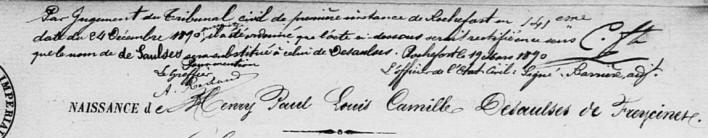 Par Jugement du Tribunal civil de première instance de Rochefort en
date du 24 Décembre 1890, il a été ordonné que l'acte ci-dessous serait rectifié en ce sens
que le nom de de Saulses sera substitué à celui de Desaulses. Rochefort le 19 Mars 1890
Pour mention
Le Greffier
L'officier de l'Etat Civil : Signé : Barrière adj.
IMPERIAL
NAISSANCE de Henry Paul Louis Camille Desaulses de Freycinet.